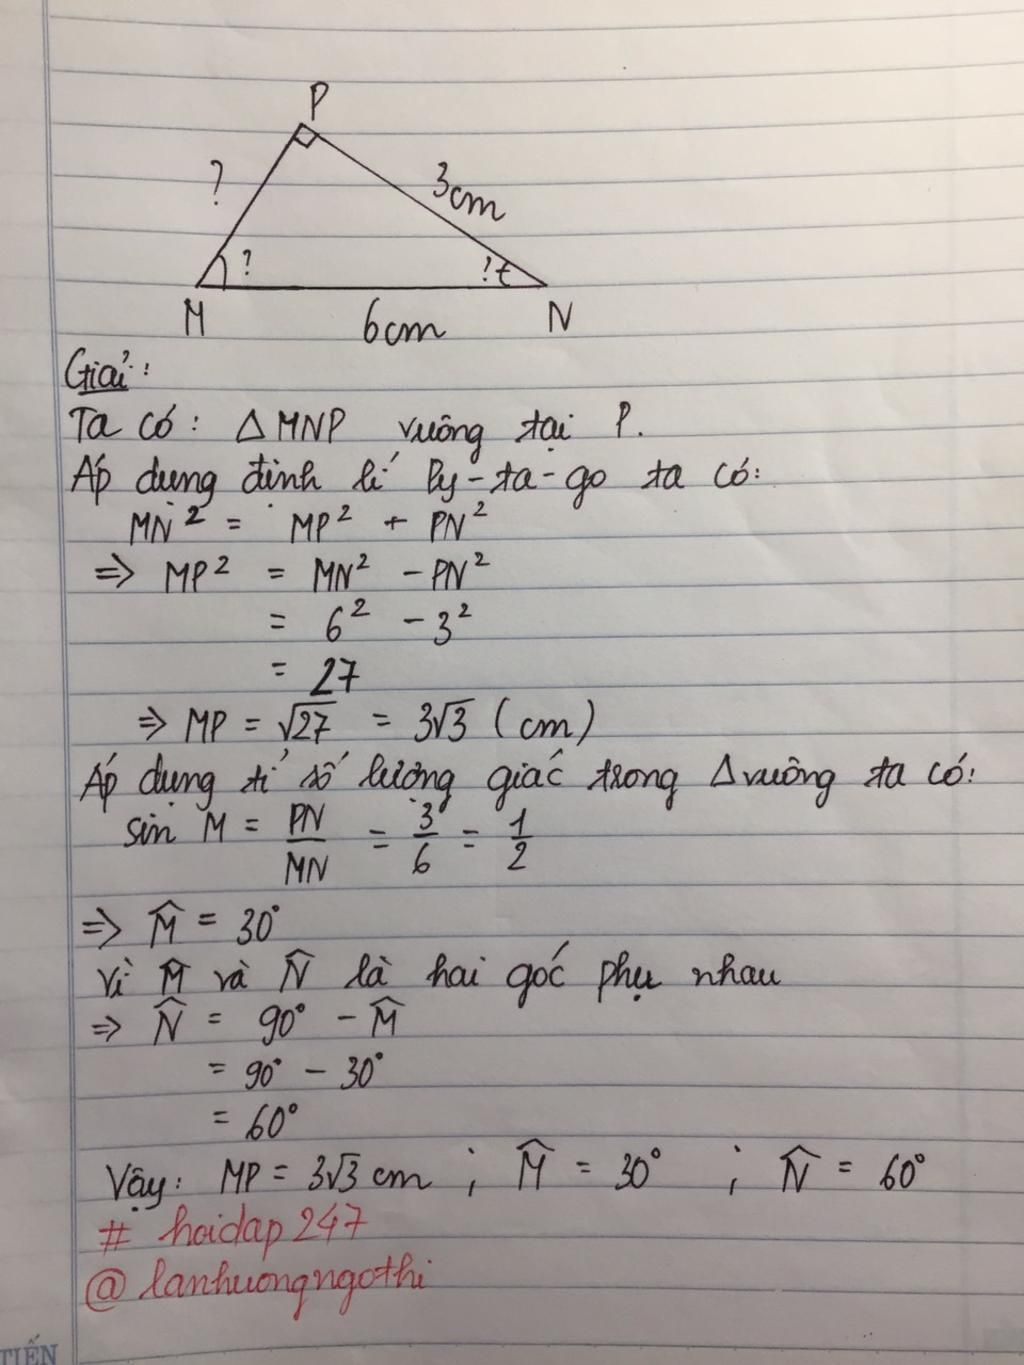 P
?
3cm
?
?
M
6cm
N
Giải:
Ta có: △MNP vuông tại P.
Áp dụng định lí Py-ta-go ta có:
MN² = MP² + PN²
⇒ MP² = MN² - PN²
= 6² - 3²
= 27
⇒ MP = √27 = 3√3 (cm)
Áp dụng tỉ số lượng giác trong △vuông ta có:
sin M = PN/MN = 3/6 = 1/2
⇒ M̂ = 30°
Vì M̂ và N̂ là hai góc phụ nhau
⇒ N̂ = 90° - M̂
= 90° - 30°
= 60°
Vậy: MP = 3√3 cm ; M̂ = 30° ; N̂ = 60°
# hoidap247
@ lanhuongngothi
TIẾN